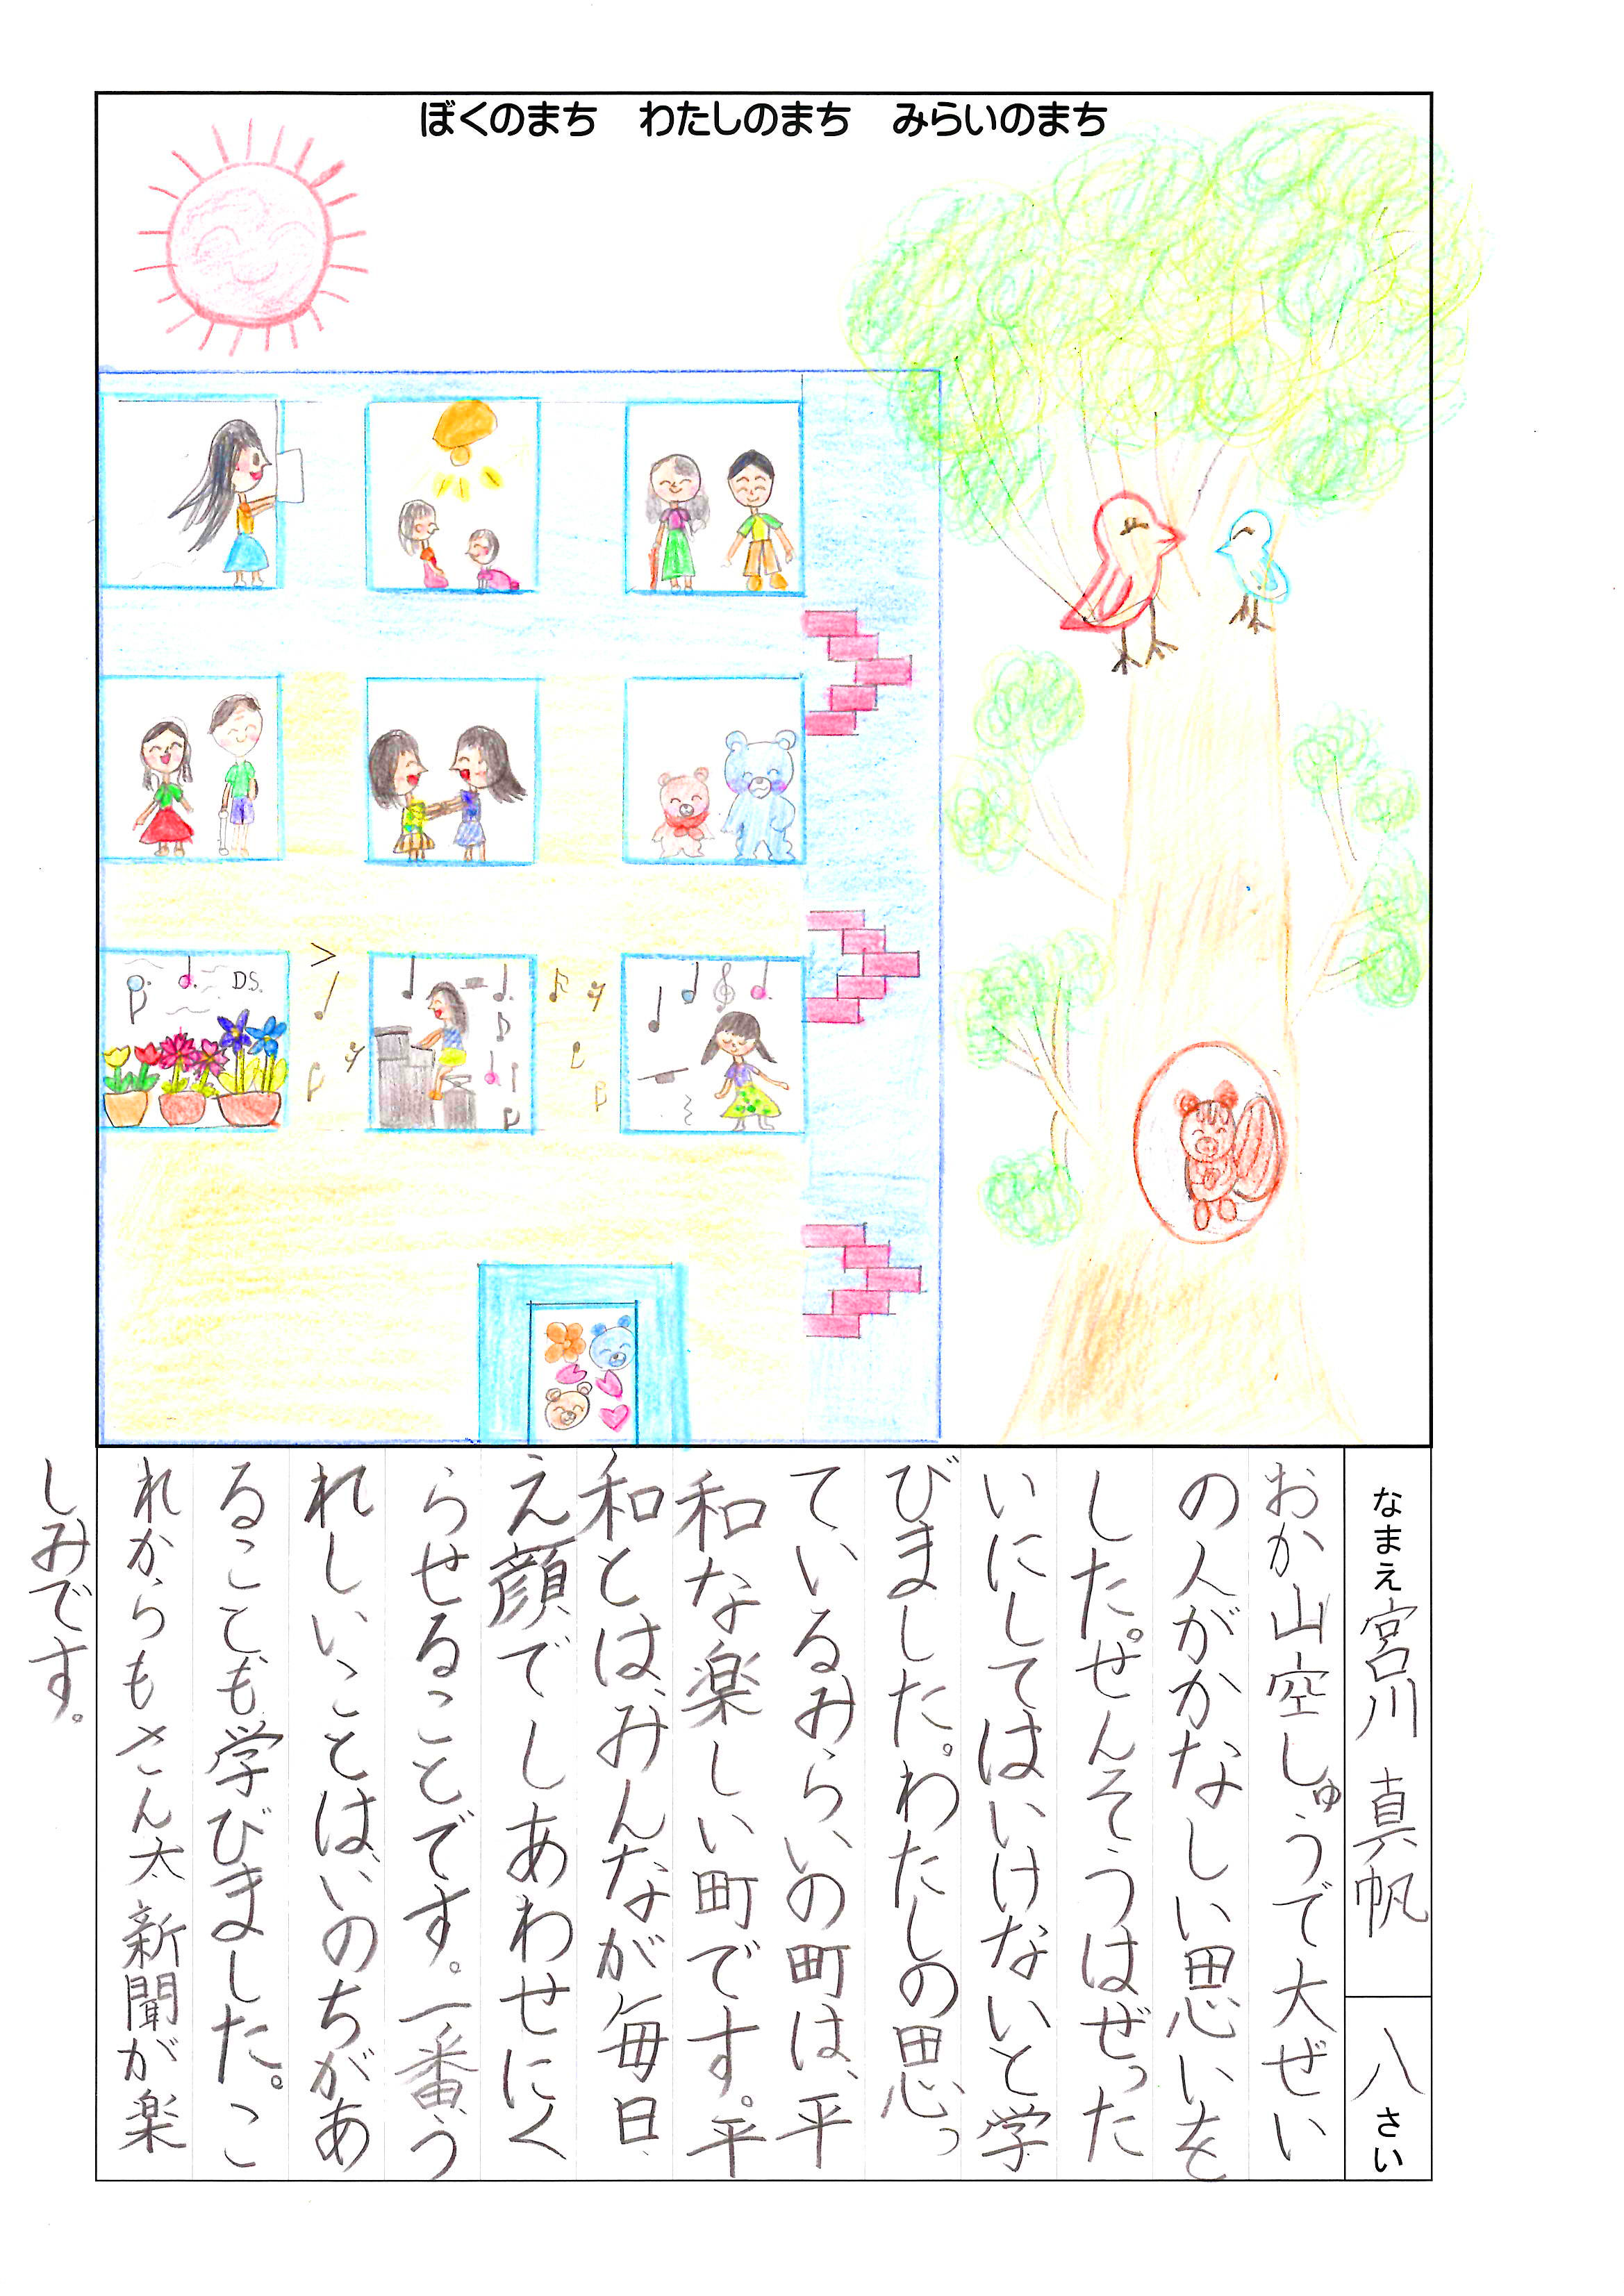 ぼくのまち　わたしのまち　みらいのまち
なまえ 宮川 真帆
八さい
おか山空しゅうで大ぜい
の人がかなしい思いを
した。せんそうはぜった
いにしてはいけないと学
びました。わたしの思っ
ているみらいの町は、平
和な楽しい町です。平
和とは、みんなが毎日、
え顔でしあわせにく
らせることです。一番、う
れしいことは、いのちがあ
ることも学びました。こ
れからもさん太新聞が楽
しみです。
D.S.